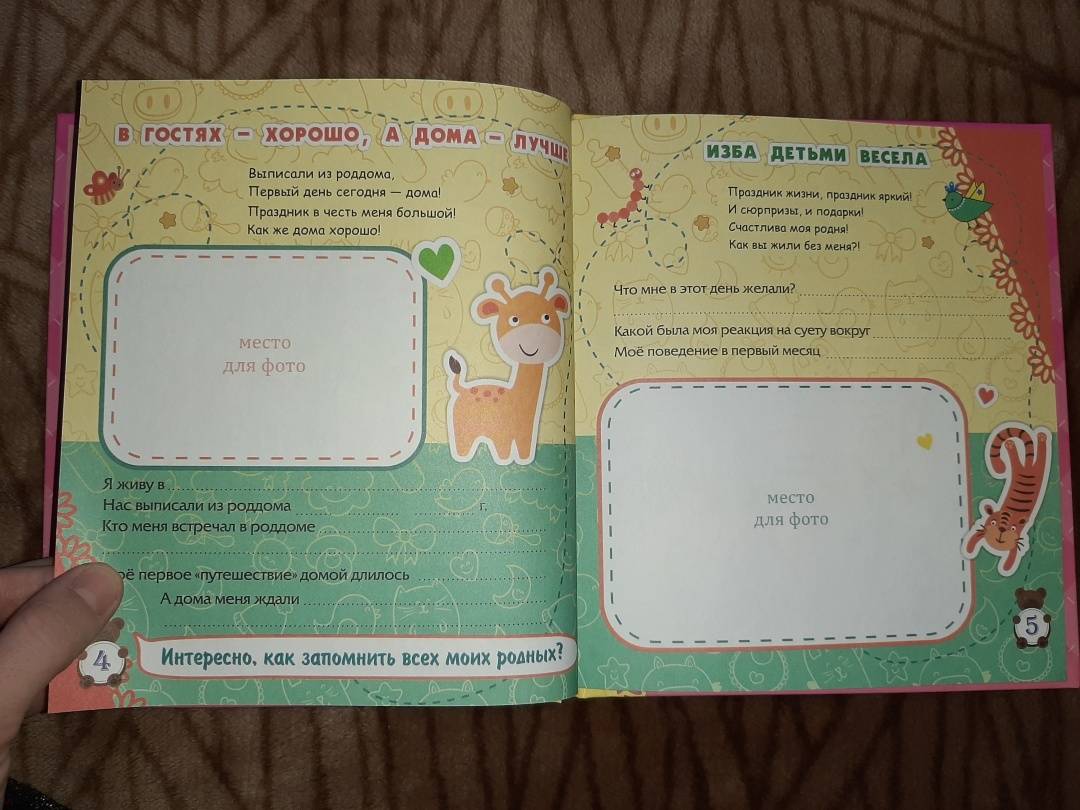 В ГОСТЯХ – ХОРОШО, А ДОМА – ЛУЧШЕ
Выписали из роддома,
Первый день сегодня — дома!
Праздник в честь меня большой!
Как же дома хорошо!
место
для фото
Я живу в
Нас выписали из роддома г.
Кто меня встречал в роддоме
первое «путешествие» домой длилось
А дома меня ждали
4
Интересно, как запомнить всех моих родных?
ИЗБА ДЕТЬМИ ВЕСЕЛА
Праздник жизни, праздник яркий!
И сюрпризы, и подарки!
Счастлива моя родня!
Как вы жили без меня?!
Что мне в этот день желали?
Какой была моя реакция на суету вокруг
Моё поведение в первый месяц
место
для фото
5